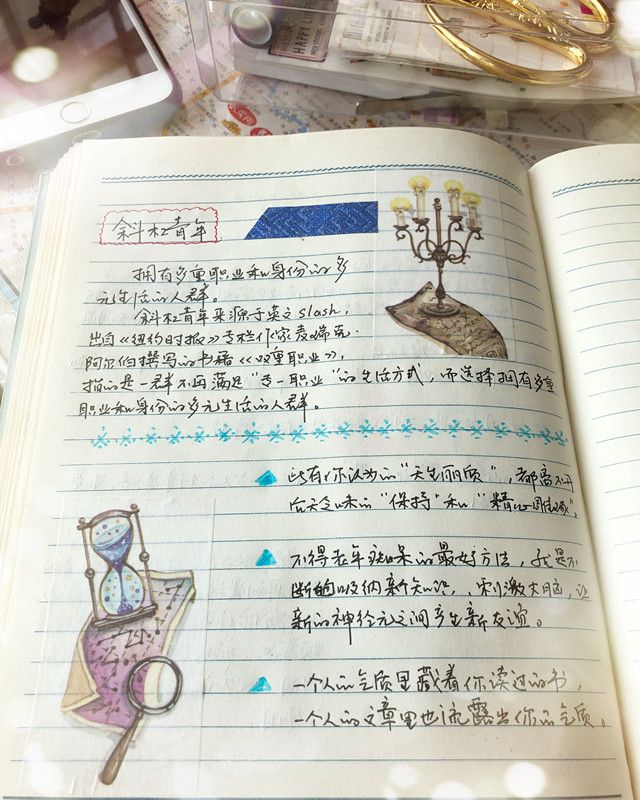 HAPPY
斜杠青年
拥有多重职业和身份的多
元生活的人群。
斜杠青年来源于英文slash,
出自《纽约时报》专栏作家麦瑞克·
阿尔伯撰写的书籍《双重职业》,
指的是一群不再满足“专一职业”的生活方式,而选择拥有多重
职业和身份的多元生活的人群。
所有你认为的“天生丽质”,都离不开
后天的“保持”和“精心
不得老年痴呆的最好方法,就是不
断的吸纳新知识,刺激大脑,让
新的神经元之间产生新友谊。
一个人的气质里藏着你读过的书,
一个人的文章里也流露出你的气质。